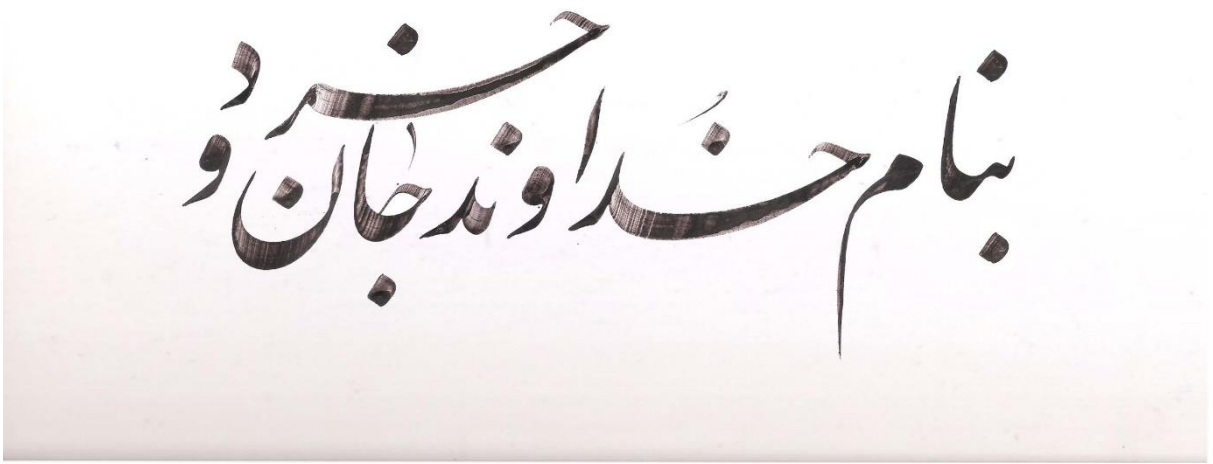 بنام خُداوند جان و خرد